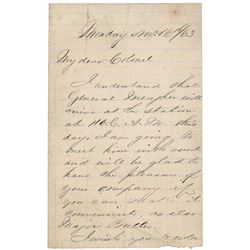 Monday Nov 16th/63
My dear Colonel
I understand that
General Meagher will
arrive at the station
at 10. A.M. this
day. I am going to
meet him with
and will be glad to
have the pleasure of
your company if
you can make it
convenient, as also
Major
I wish you